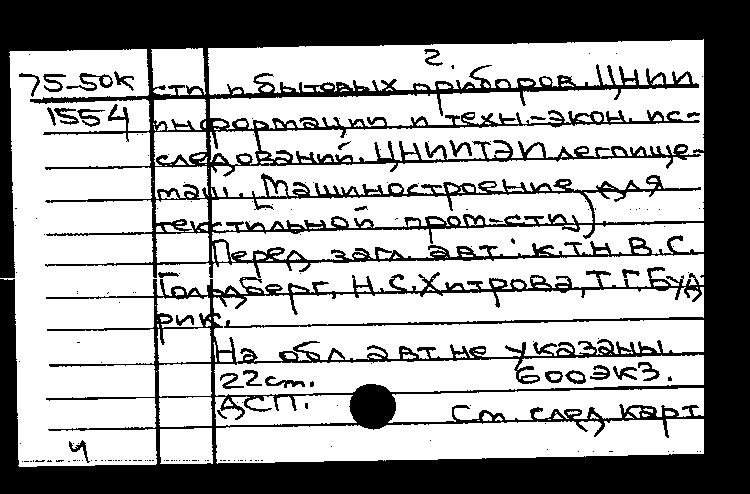 2.
75-50к сти и бытовых приборов. ЦНИИ
1554 информации и техн.-экон. ис-
следований. ЦНИИТЭИлегпище-
маш. [Машиностроение для
текстильной пром-сти]).
Перед загл. авт.: к.т.н. В.С.
Гольдберг, Н.С.Хитрова, Т.Г.Буд
рик.
На обл. авт. не указаны.
22см. 600экз.
ДСП.
См. след. карт
ч